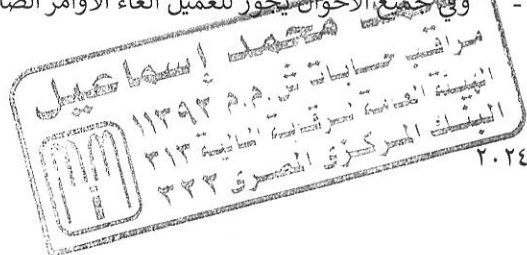 - وفي جميع الأحوال يجوز للعميل الغاء الأوامر الصا
محمد إسماعيل
مراقب حسابات س.م.م ١١٣٩٢
الهيئة العامة للرقابة المالية ٣١٣
البنك المركزى المصرى ٢٢٢
٢٠٢٤